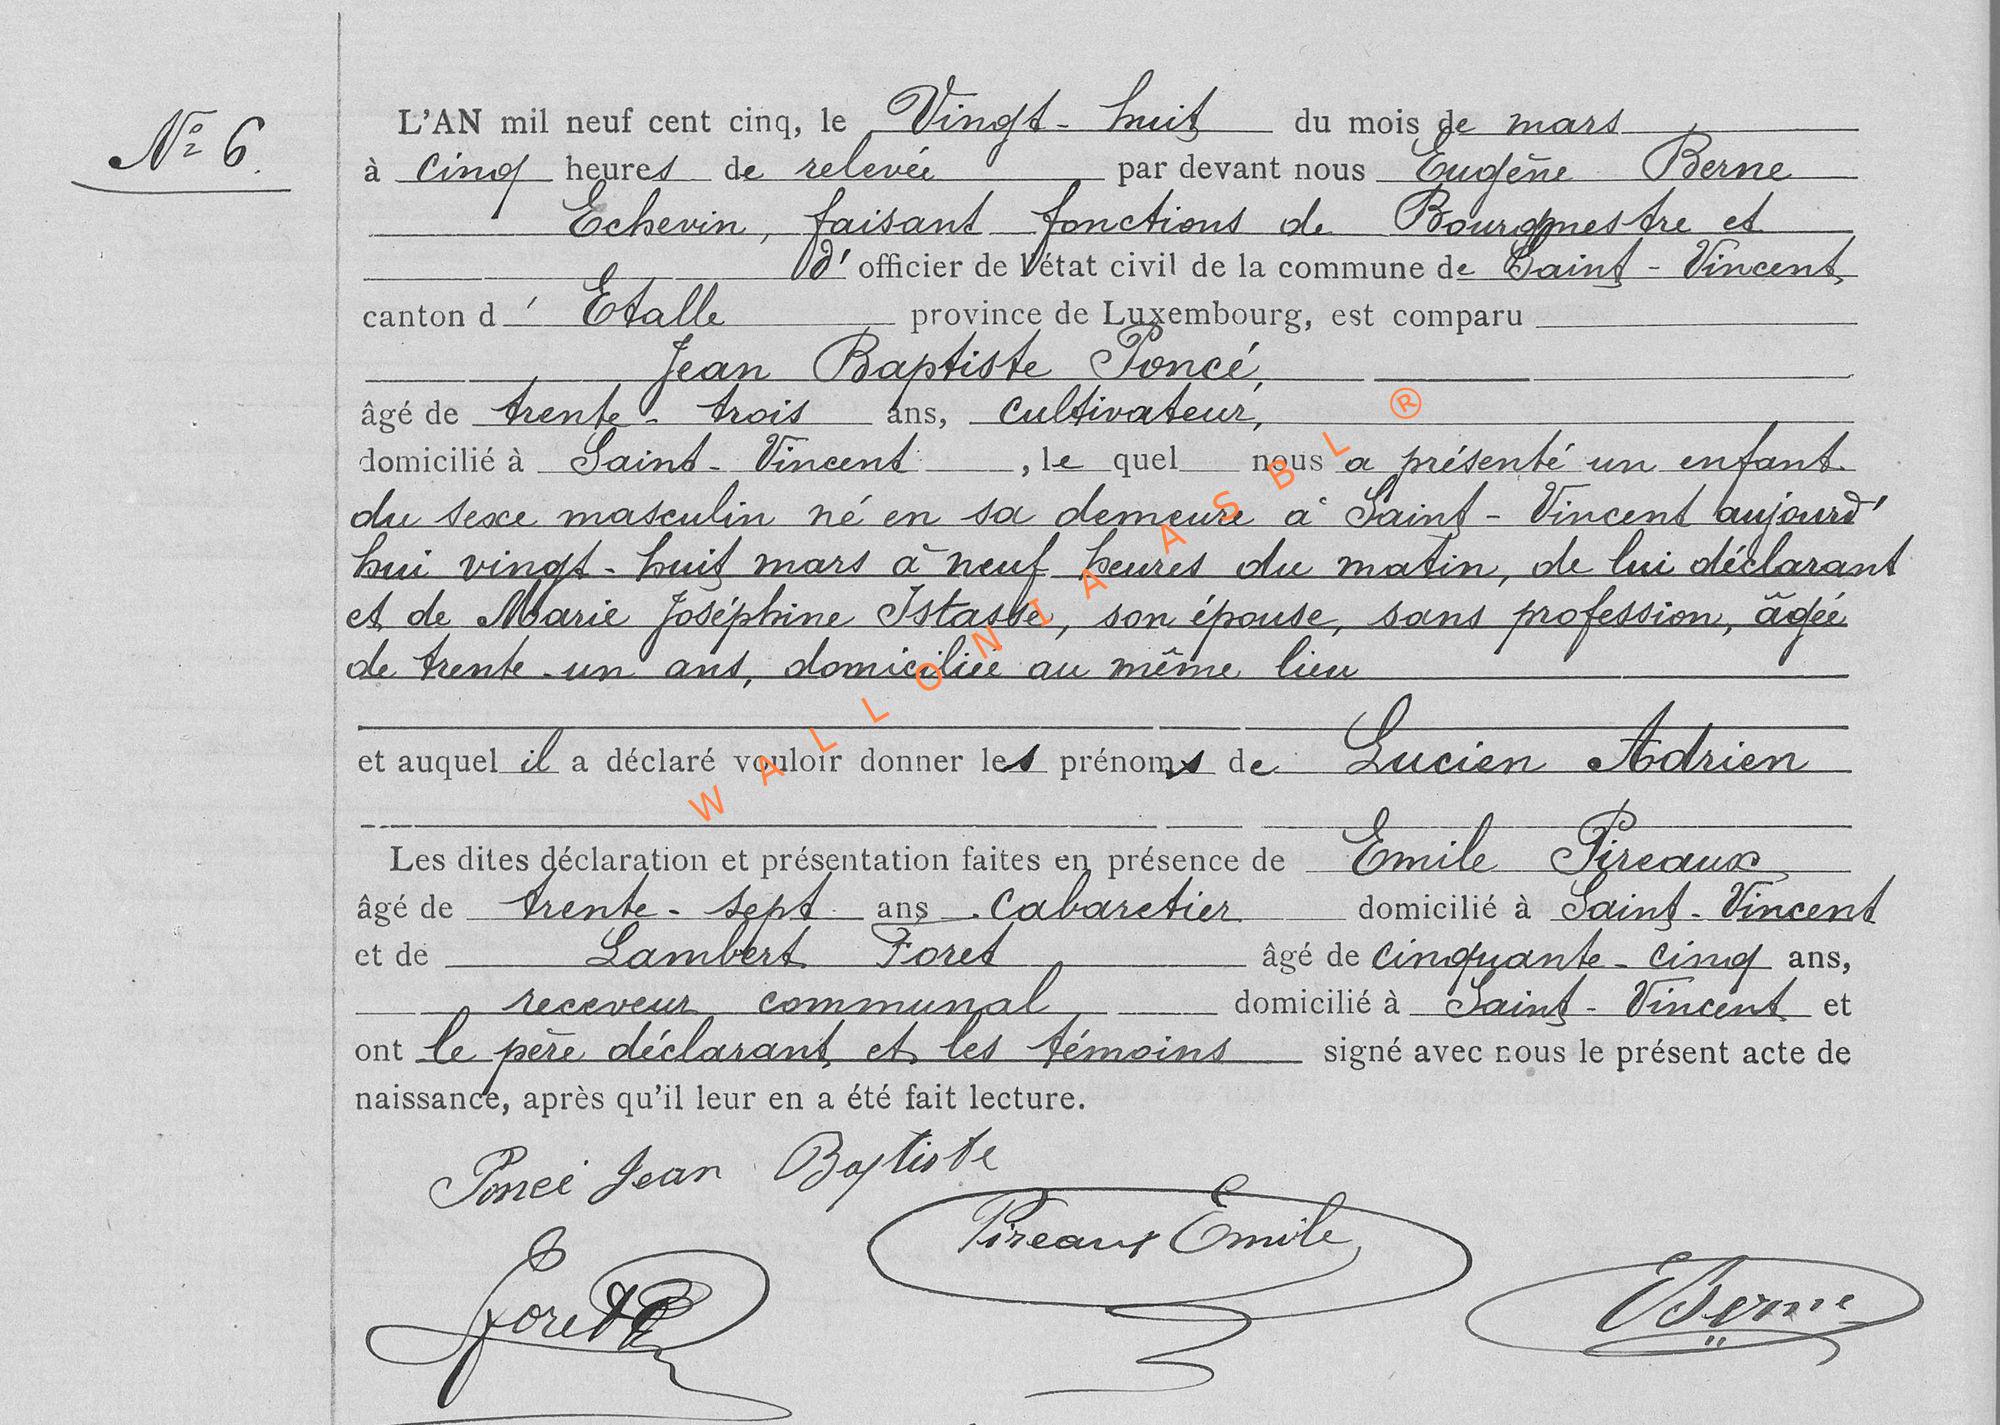 N° 6.
L'AN mil neuf cent cinq, le Vingt-huit du mois de mars
à cinq heures de relevée par devant nous Eugène Berne
Echevin, faisant fonctions de Bourgmestre et
d'officier de l'état civil de la commune de Saint-Vincent,
canton d'Etalle province de Luxembourg, est comparu
Jean Baptiste Poncé,
âgé de trente-trois ans, cultivateur,
domicilié à Saint-Vincent, le quel nous a présenté un enfant
du sexe masculin né en sa demeure à Saint-Vincent aujourd'
hui vingt-huit mars à neuf heures du matin, de lui déclarant
et de Marie Joséphine Istasse, son épouse, sans profession, âgée
de trente-un ans, domiciliée au même lieu
et auquel il a déclaré vouloir donner les prénoms de Lucien Adrien
Les dites déclaration et présentation faites en présence de Emile Pireaux
âgé de trente-sept ans cabaretier domicilié à Saint-Vincent
et de Lambert Foret âgé de cinquante-cinq ans,
receveur communal domicilié à Saint-Vincent et
ont le père déclarant et les témoins signé avec nous le présent acte de
naissance, après qu'il leur en a été fait lecture.
Poncé Jean Baptiste
Pireaux Emile
Foret
EBerne
WALLONIA ASBL ®